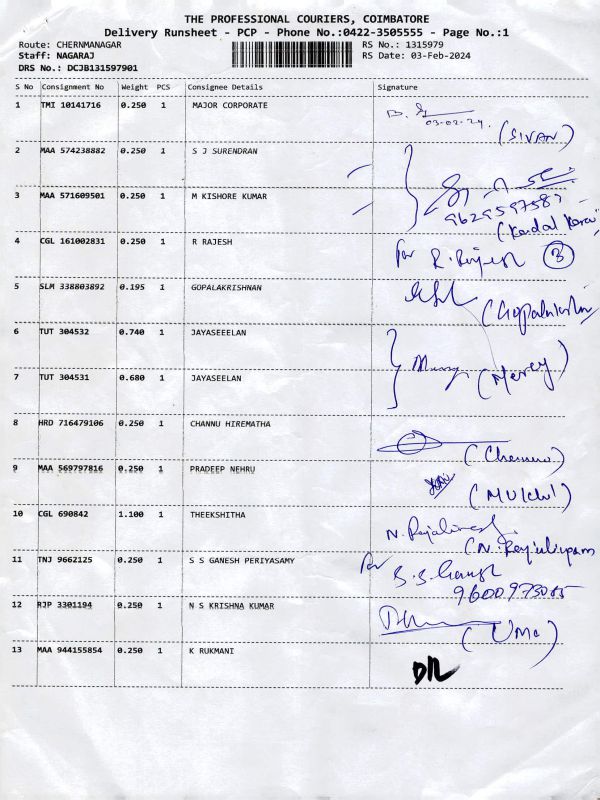 THE PROFESSIONAL COURIERS, COIMBATORE
Delivery Runsheet - PCP - Phone No.:0422-3505555 - Page No.:1
Route: CHERNMANAGAR RS No.: 1315979
Staff: NAGARAJ RS Date: 03-Feb-2024
DRS No.: DCJB131597901
S No Consignment No Weight PCS Consignee Details Signature
1 TMI 10141716 0.250 1 MAJOR CORPORATE
03-02-24. (SIVAN)
2 MAA 574238882 0.250 1 S J SURENDRAN
3 MAA 571609501 0.250 1 M KISHORE KUMAR
4 CGL 161002831 0.250 1 R RAJESH for R. Rajesh 3
5 SLM 338803892 0.195 1 GOPALAKRISHNAN
6 TUT 304532 0.740 1 JAYASEEELAN
(Mercy)
7 TUT 304531 0.680 1 JAYASEELAN
8 HRD 716479106 0.250 1 CHANNU HIREMATHA
9 MAA 569797816 0.250 1 PRADEEP NEHRU
10 CGL 690842 1.100 1 THEEKSHITHA
11 TNJ 9662125 0.250 1 S S GANESH PERIYASAMY for S. S. Ganesh
9600973085
12 RJP 3301194 0.250 1 N S KRISHNA KUMAR
(Uma)
13 MAA 944155854 0.250 1 K RUKMANI
D/L